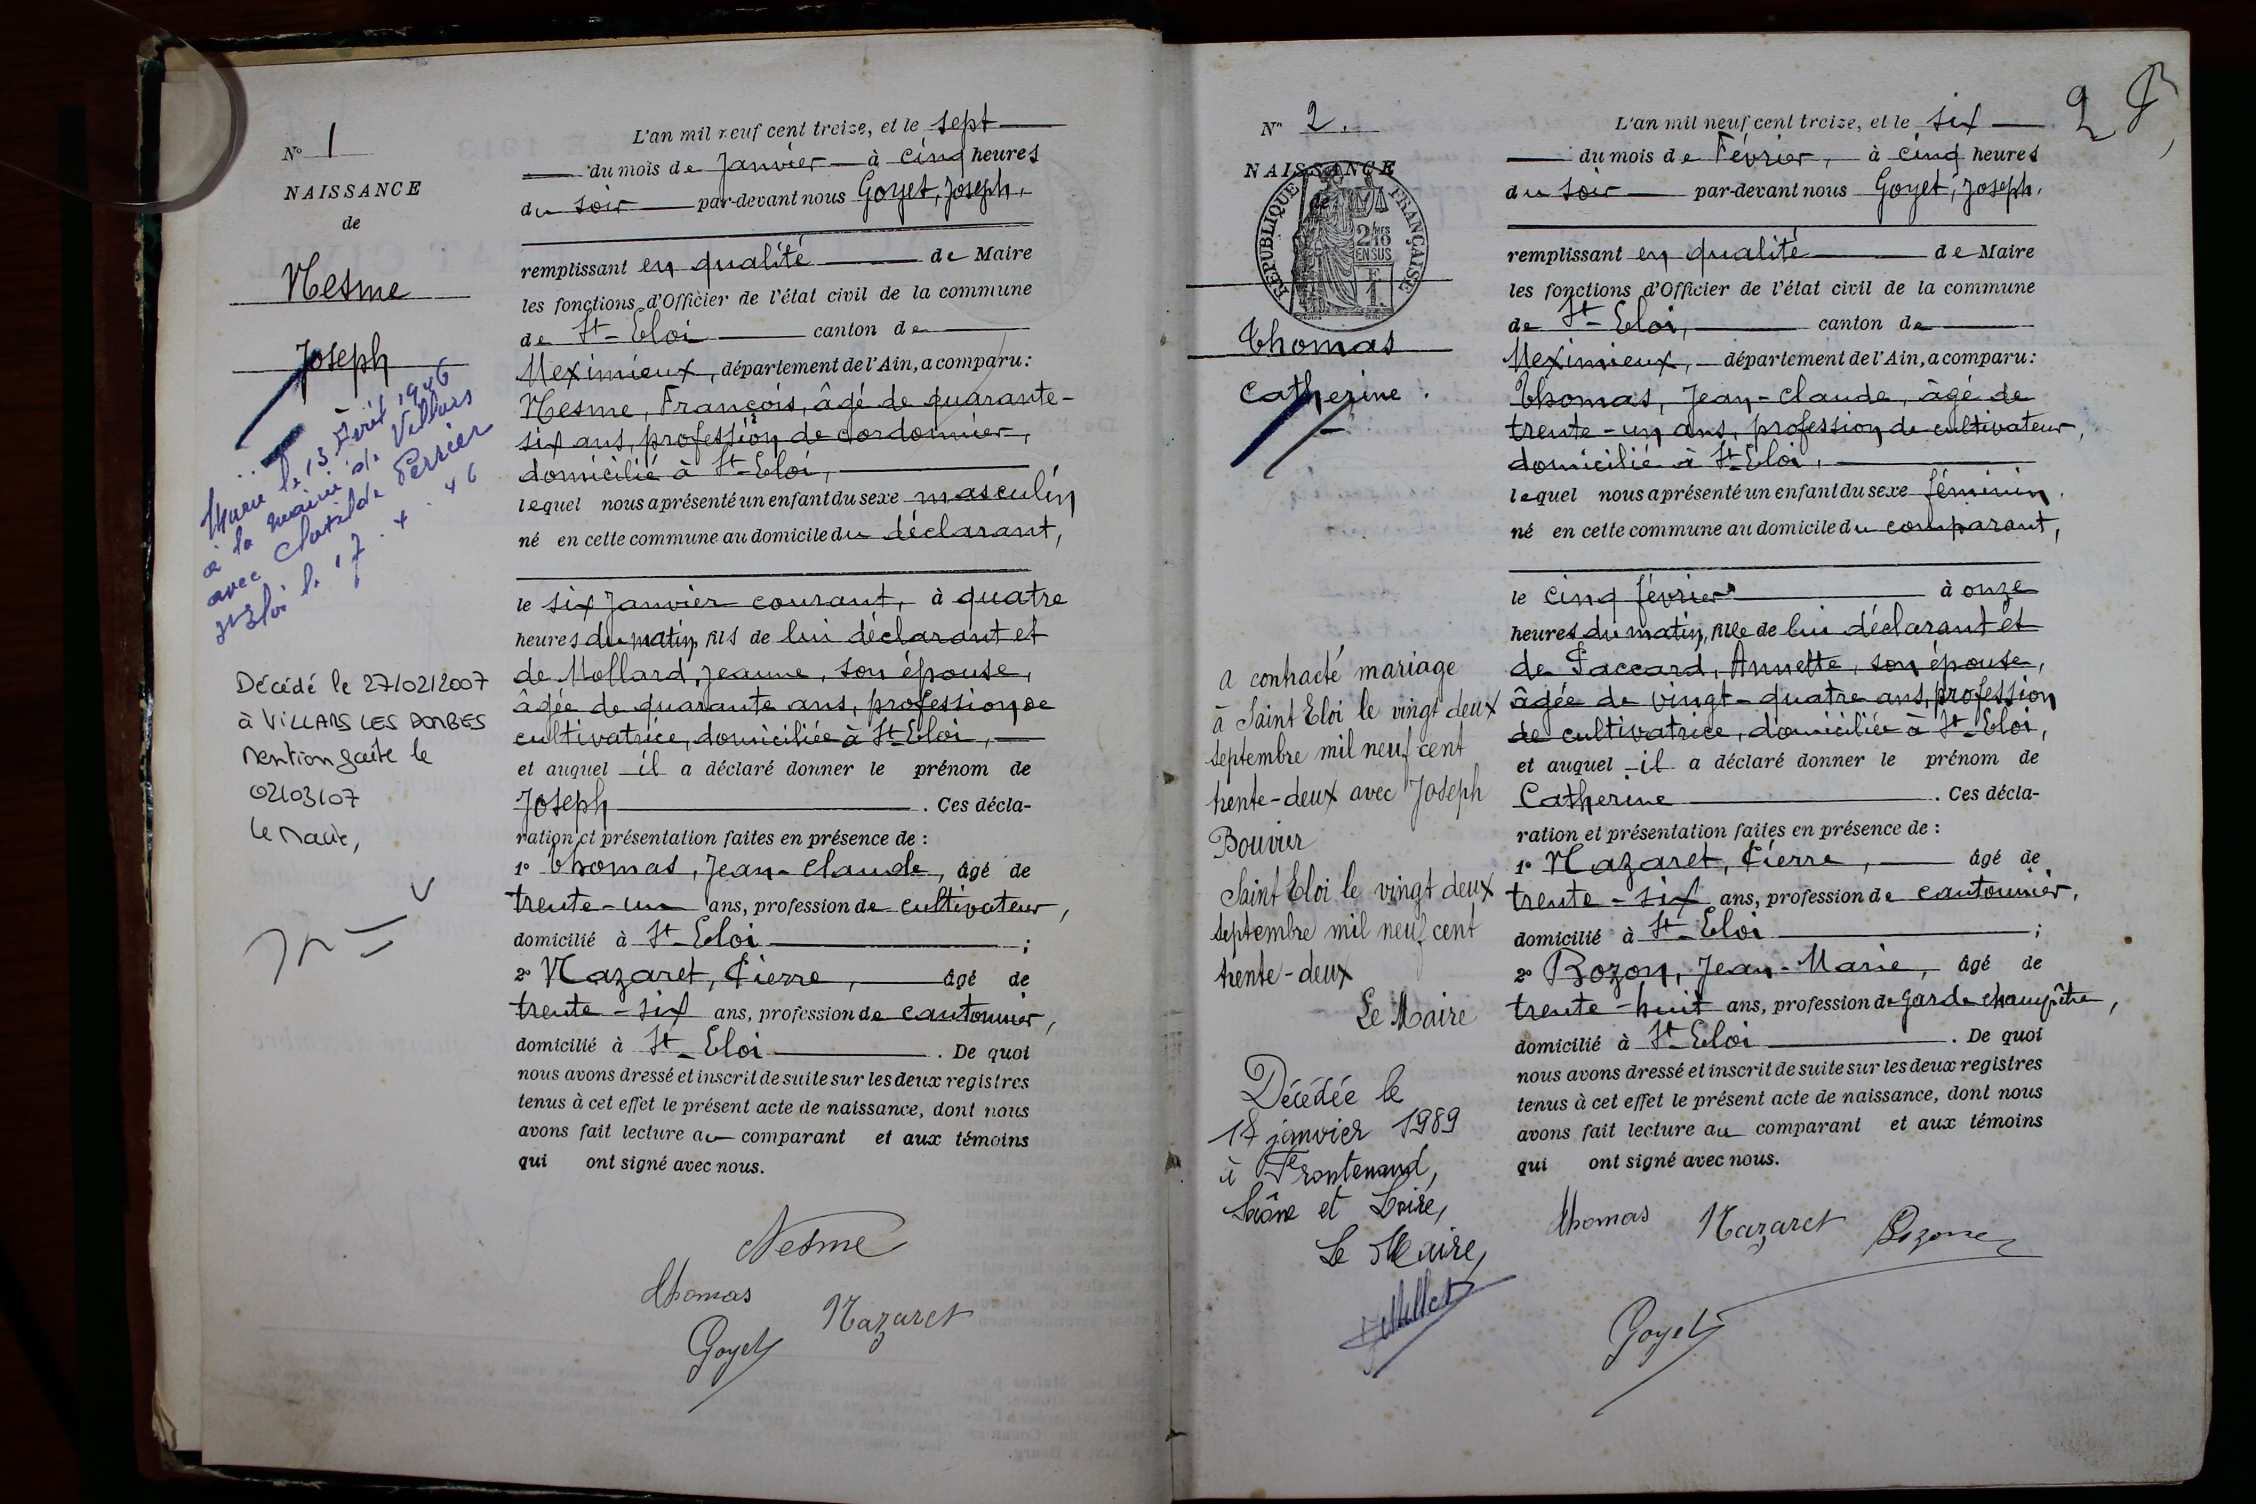 N° 1
NAISSANCE
de
Nesme
Joseph
Marié le 13 Avril 1946
à la mairie de Villars
avec Clotilde Perrier
St Eloi le 17.4.46
Décédé le 27/02/2007
à VILLARS LES DOMBES
Mention faite le
02/03/07
Le Maire,
L'an mil neuf cent treize, et le sept
du mois de Janvier à cinq heures
du soir par-devant nous Goyet, Joseph,
remplissant en qualité de Maire
les fonctions d'Officier de l'état civil de la commune
de St-Eloi canton de
Meximieux, département de l'Ain, a comparu:
Nesme, François, âgé de quarante-
six ans, profession de cordonnier,
domicilié à St-Eloi,
lequel nous a présenté un enfant du sexe masculin
né en cette commune au domicile du déclarant,
le six Janvier courant, à quatre
heures du matin, fils de lui déclarant et
de Mollard, Jeanne, son épouse,
âgée de quarante ans, profession de
cultivatrice, domiciliée à St-Eloi,
et auquel il a déclaré donner le prénom de
Joseph. Ces décla-
ration et présentation faites en présence de :
1° Thomas, Jean-Claude, âgé de
trente-un ans, profession de cultivateur,
domicilié à St-Eloi ;
2° Nazaret, Pierre, âgé de
trente-six ans, profession de cantonnier,
domicilié à St-Eloi. De quoi
nous avons dressé et inscrit de suite sur les deux registres
tenus à cet effet le présent acte de naissance, dont nous
avons fait lecture au comparant et aux témoins
qui ont signé avec nous.
Nesme
Thomas
Nazaret
Goyet
2
N° 2.
NAISSANCE
de
RÉPUBLIQUE FRANÇAISE
2/10 EN SUS
Thomas
Catherine.
a contracté mariage
à Saint Eloi le vingt deux
septembre mil neuf cent
trente-deux avec Joseph
Bouvier
Saint Eloi le vingt deux
septembre mil neuf cent
trente-deux
Le Maire
Décédée le
17 janvier 1989
à Frontenaud,
Saône et Loire,
Le Maire,
L'an mil neuf cent treize, et le six
du mois de Février, à cinq heures
du soir par-devant nous Goyet, Joseph,
remplissant en qualité de Maire
les fonctions d'Officier de l'état civil de la commune
de St-Eloi, canton de
Meximieux, département de l'Ain, a comparu:
Thomas, Jean-Claude, âgé de
trente-un ans, profession de cultivateur,
domicilié à St-Eloi,
lequel nous a présenté un enfant du sexe féminin,
né en cette commune au domicile du comparant,
le cinq février à onze
heures du matin, fille de lui déclarant et
de Paccard, Annette, son épouse,
âgée de vingt-quatre ans, profession
de cultivatrice, domiciliée à St-Eloi,
et auquel il a déclaré donner le prénom de
Catherine. Ces décla-
ration et présentation faites en présence de :
1° Nazaret, Pierre, âgé de
trente-six ans, profession de cantonnier,
domicilié à St-Eloi ;
2° Bozon, Jean-Marie, âgé de
trente-huit ans, profession de garde champêtre,
domicilié à St-Eloi. De quoi
nous avons dressé et inscrit de suite sur les deux registres
tenus à cet effet le présent acte de naissance, dont nous
avons fait lecture au comparant et aux témoins
qui ont signé avec nous.
Thomas Nazaret Bozon
Goyet